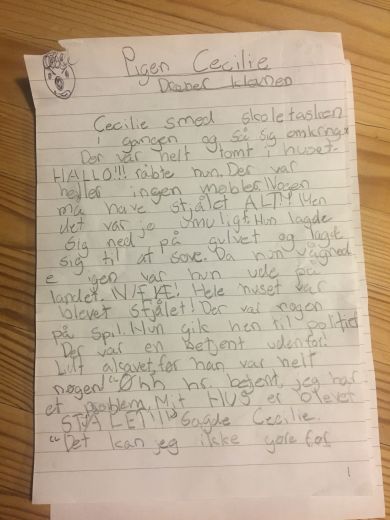 Pigen Cecilie
Dræber klovnen
Cecilie smed skoletasken
i gangen og så sig omkring.
Der var helt tomt i huset.
HALLO!!! råbte hun. Der var
heller ingen møbler. Nogen
må have stjålet ALT!!! Men
det var jo umuligt. Hun lagde
sig ned på gulvet og lagde
sig til at sove. Da hun vågned
e igen var hun ude på
landet. Hele huset var
blevet stjålet! Der var nogen
på spil. Hun gik hen til politiet
Der var en betjent udenfor.
Lidt akavet, for han var helt
nøgen "Øhh hr. betjent, jeg har
et problem. Mit HUS er blevet
STJÅLET!!!" Sagde Cecilie.
"Det kan jeg ikke gøre for
1